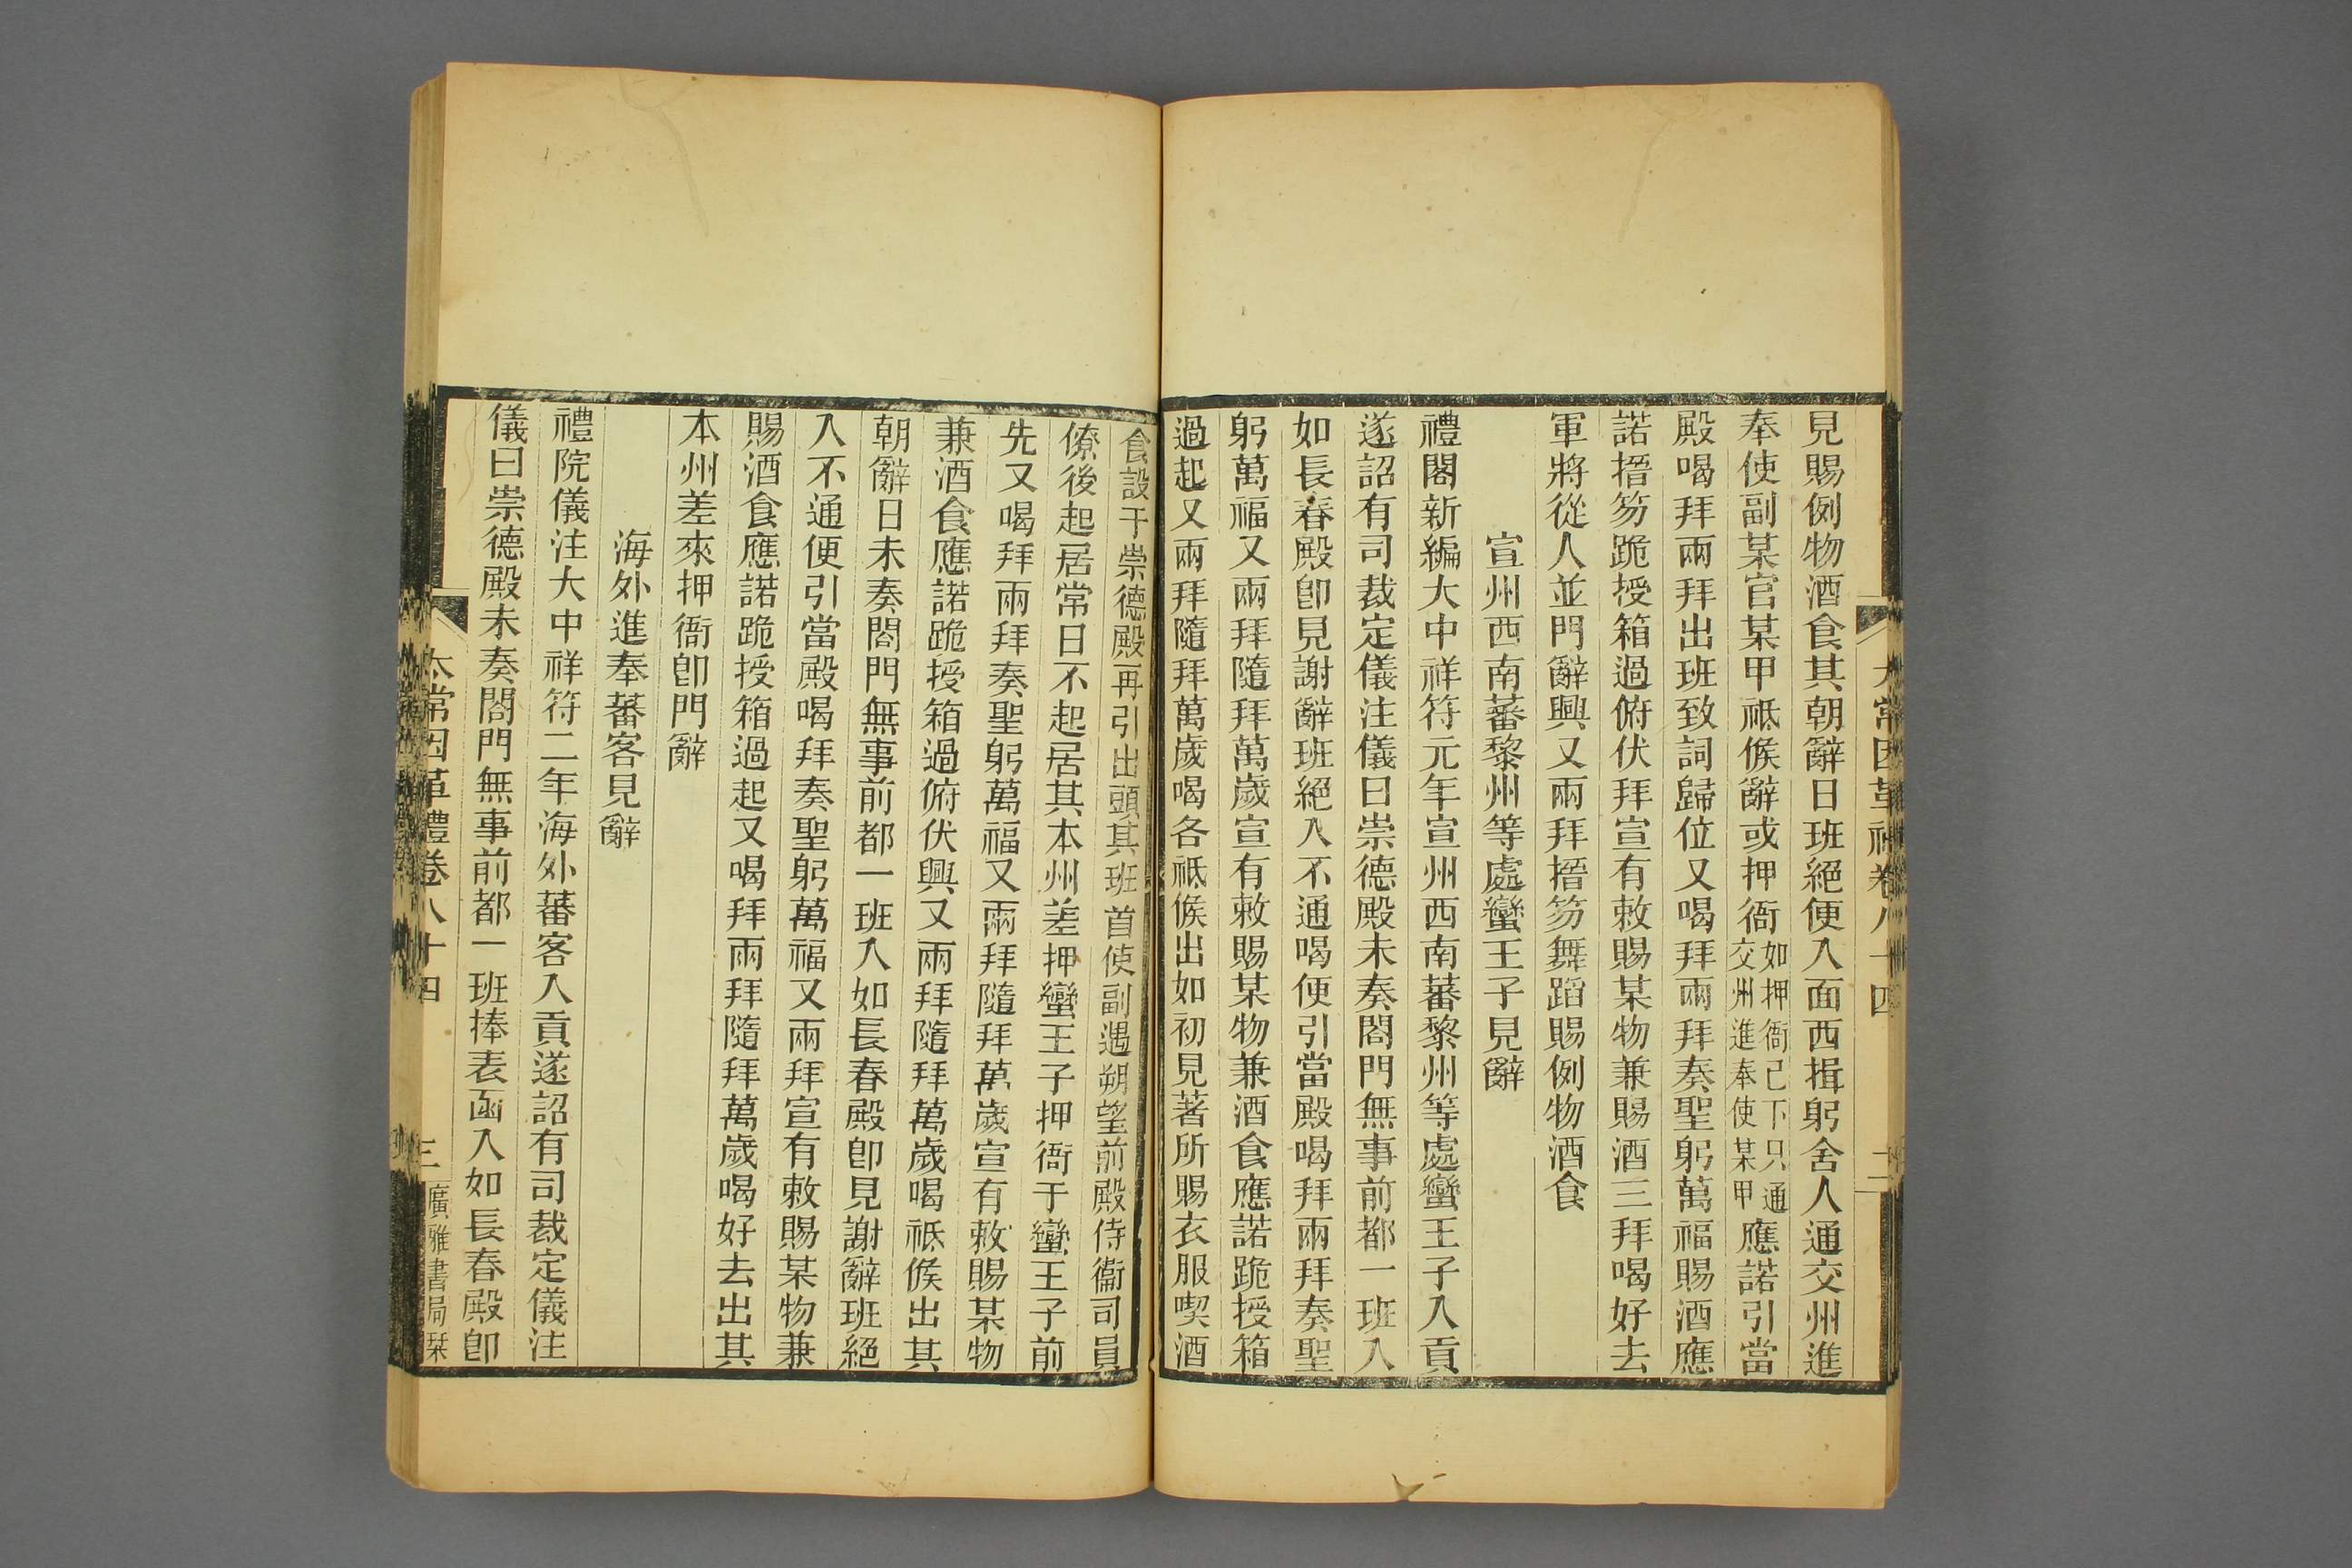 太常因革禮卷八十四
二
見賜例物酒食其朝辭日班絕便入面西揖躬舍人通交州進
奉使副某官某甲祗候辭或押衙如押衙已下只通交州進奉使某甲應諾引當
殿喝拜兩拜出班致詞歸位又喝拜兩拜奏聖躬萬福賜酒應
諾搢笏跪授箱過俯伏拜宣有敕賜某物兼賜酒三拜喝好去
軍將從人並門辭興又兩拜搢笏舞蹈賜例物酒食
宣州西南蕃黎州等處蠻王子見辭
禮閣新編大中祥符元年宣州西南蕃黎州等處蠻王子入貢
遂詔有司裁定儀注儀曰崇德殿未奏閤門無事前都一班入
如長春殿卽見謝辭班絕入不通喝便引當殿喝拜兩拜奏聖
躬萬福又兩拜隨拜萬歲宣有敕賜某物兼酒食應諾跪授箱
過起又兩拜隨拜萬歲喝各祗候出如初見著所賜衣服喫酒
食設于崇德殿再引出頭其班首使副遇朔望前殿侍衞司員
僚後起居常日不起居其本州差押蠻王子押衙于蠻王子前
先又喝拜兩拜奏聖躬萬福又兩拜隨拜萬歲宣有敕賜某物
兼酒食應諾跪授箱過俯伏興又兩拜隨拜萬歲喝祗候出其
朝辭日未奏閤門無事前都一班入如長春殿卽見謝辭班絕
入不通便引當殿喝拜奏聖躬萬福又兩拜宣有敕賜某物兼
賜酒食應諾跪授箱過起又喝拜兩拜隨拜萬歲喝好去出其
本州差來押衙卽門辭
海外進奉蕃客見辭
禮院儀注大中祥符二年海外蕃客入貢遂詔有司裁定儀注
儀曰崇德殿未奏閤門無事前都一班捧表函入如長春殿卽
太常因革禮卷八十四
三
廣雅書局栞